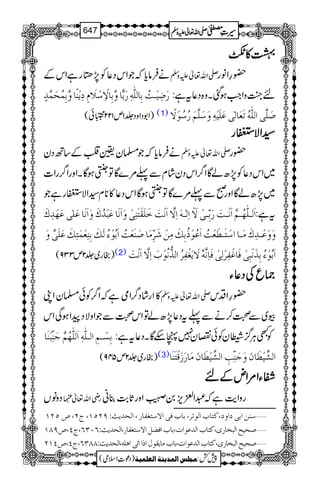 سیرتِ مصطفی صلی اللہ تعالیٰ علیہ وسلم 647
بہشت کا ٹکٹ
حضور انور صلی اللہ تعالیٰ علیہ وسلم نے فرمایا کہ جو اس دعا کو پڑھتا رہے اس کے
لئے جنت واجب ہوگئی۔ وہ دعا یہ ہے: رَضِيْتُ بِاللّٰهِ رَبًّا وَّبِالْاِسْلَامِ دِيْنًا وَّبِمُحَمَّدٍ
صَلَّى اللّٰهُ تَعَالٰى عَلَيْهِ وَسَلَّمَ رَسُوْلًا (1) (ابوداود جلد۱ ص۲۲۱ مجتبائی)
سید الاستغفار
حضور صلی اللہ تعالیٰ علیہ وسلم نے فرمایا کہ جو مسلمان یقین قلب کے ساتھ دن
میں اس دعا کو پڑھ لے گا اگر اس دن شام سے پہلے مرے گا تو جنتی ہوگا۔ اور اگر رات
میں پڑھ لے گا اور صبح سے پہلے مرے گا تو جنتی ہوگا اس دعا کا نام سید الاستغفار ہے جو
یہ ہے: اَللّٰهُمَّ اَنْتَ رَبِّيْ لَا اِلٰهَ اِلَّا اَنْتَ خَلَقْتَنِيْ وَاَنَا عَبْدُكَ وَاَنَا عَلٰى عَهْدِكَ
وَوَعْدِكَ مَا اسْتَطَعْتُ اَعُوْذُ بِكَ مِنْ شَرِّ مَا صَنَعْتُ اَبُوْءُ لَكَ بِنِعْمَتِكَ عَلَيَّ وَ
اَبُوْءُ بِذَنْبِيْ فَاغْفِرْ لِيْ فَاِنَّهٗ لَا يَغْفِرُ الذُّنُوْبَ اِلَّا اَنْتَ (2) (بخاری جلد۲ ص۹۳۳)
جماع کی دعاء
حضور اقدس صلی اللہ تعالیٰ علیہ وسلم کا ارشاد گرامی ہے کہ اگر کوئی مسلمان اپنی
بیوی سے صحبت کرنے سے پہلے یہ دعا پڑھ لے تو اس صحبت سے جو اولاد پیدا ہوگی اس
کو کبھی ہرگز شیطان کوئی نقصان نہیں پہنچا سکے گا۔ دعا یہ ہے: بِسْمِ اللّٰهِ اَللّٰهُمَّ جَنِّبْنَا
الشَّيْطَانَ وَجَنِّبِ الشَّيْطَانَ مَا رَزَقْتَنَا (3) (بخاری جلد۲ ص۹۴۵)
شفاء امراض کے لئے
روایت ہے کہ عبدالعزیز بن صہیب اور ثابت بنانی رضی اللہ تعالیٰ عنہما دونوں
سنن ابی داود، کتاب الوتر، باب فی الاستغفار، الحدیث: ۱۵۲۹، ج۲، ص ۱۲۵
صحیح البخاری، کتاب الدعوات، باب افضل الاستغفار، الحدیث: ۶۳۰۶، ج۴، ص۱۸۹
صحیح البخاری، کتاب الدعوات، باب مایقول اذا اتی اهله، الحدیث: ۶۳۸۸، ج۴، ص۲۱۴
پیش کش: مجلس المدینۃ العلمیۃ (دعوتِ اسلامی)